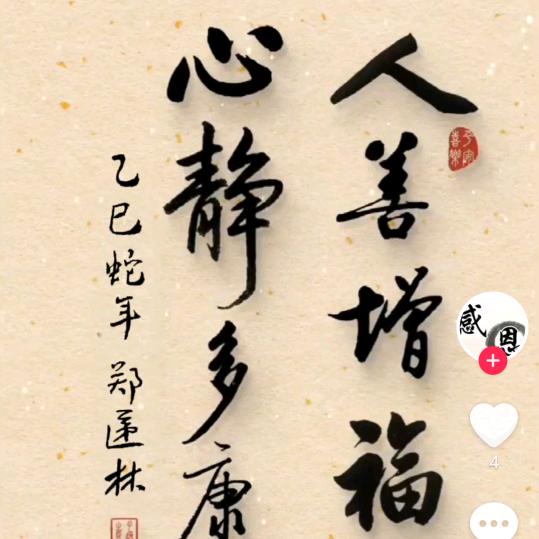 人善增福
心静多康
乙巳蛇年 郑
林
平安
喜樂
感恩
4